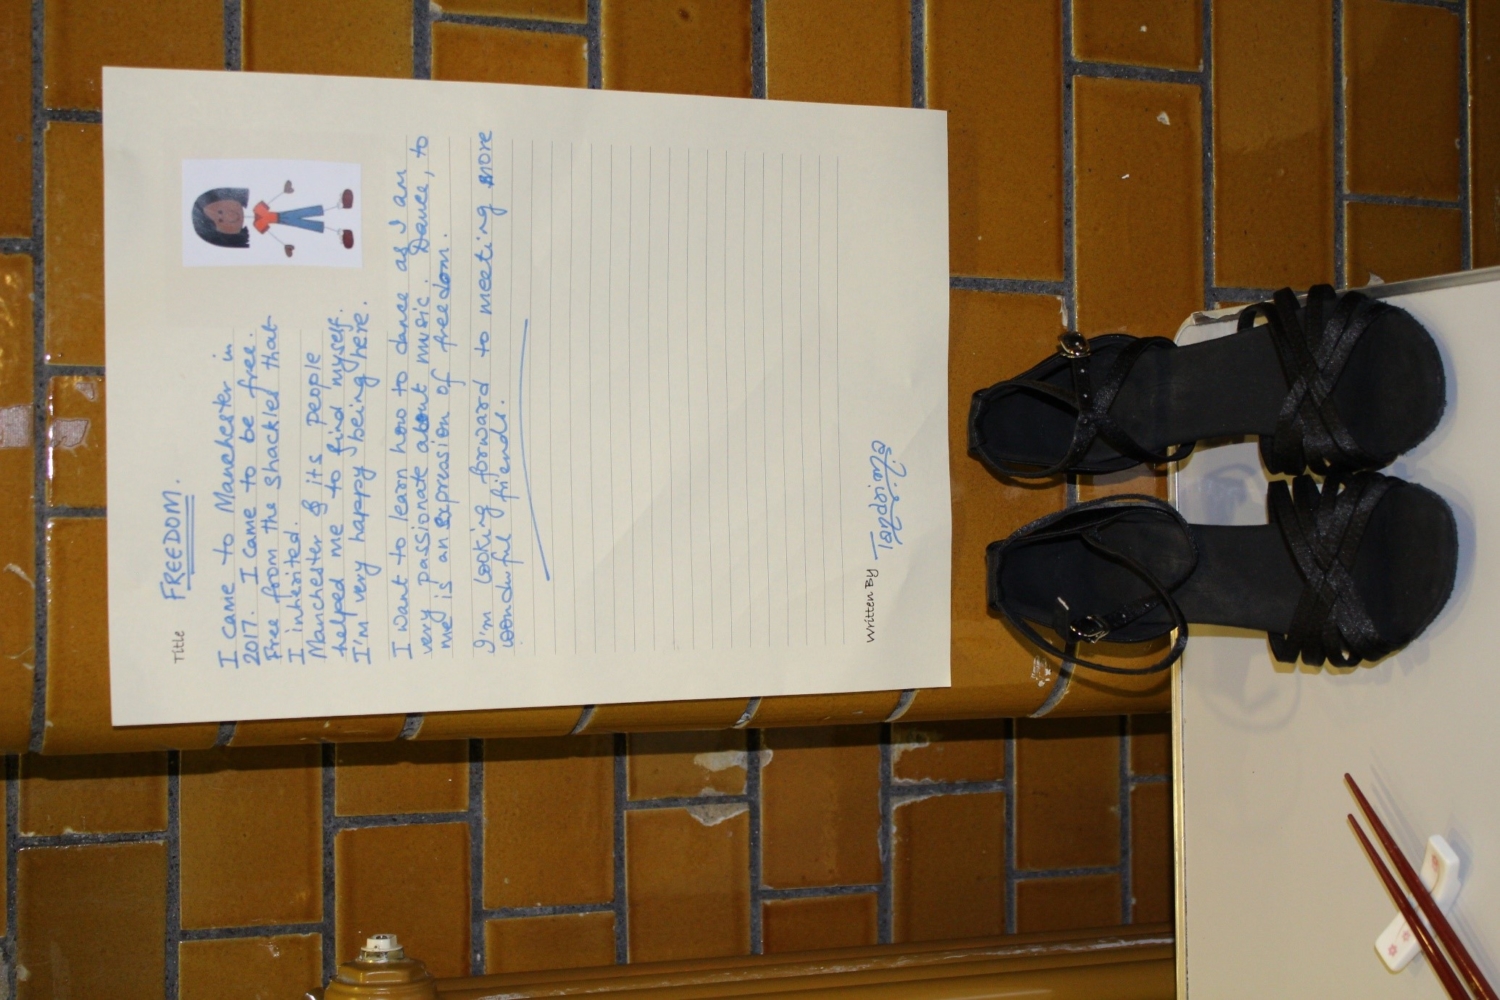 Title FREEDOM.
I came to Manchester in
2017. I came to be free.
Free from the shackles that
I inherited.
Manchester & its people
helped me to find myself.
I'm very happy being here.
I want to learn how to dance as I am
very passionate about music. Dance, to
me is an expression of freedom.
I'm looking forward to meeting more
wonderful friends.
Written By Tandrima